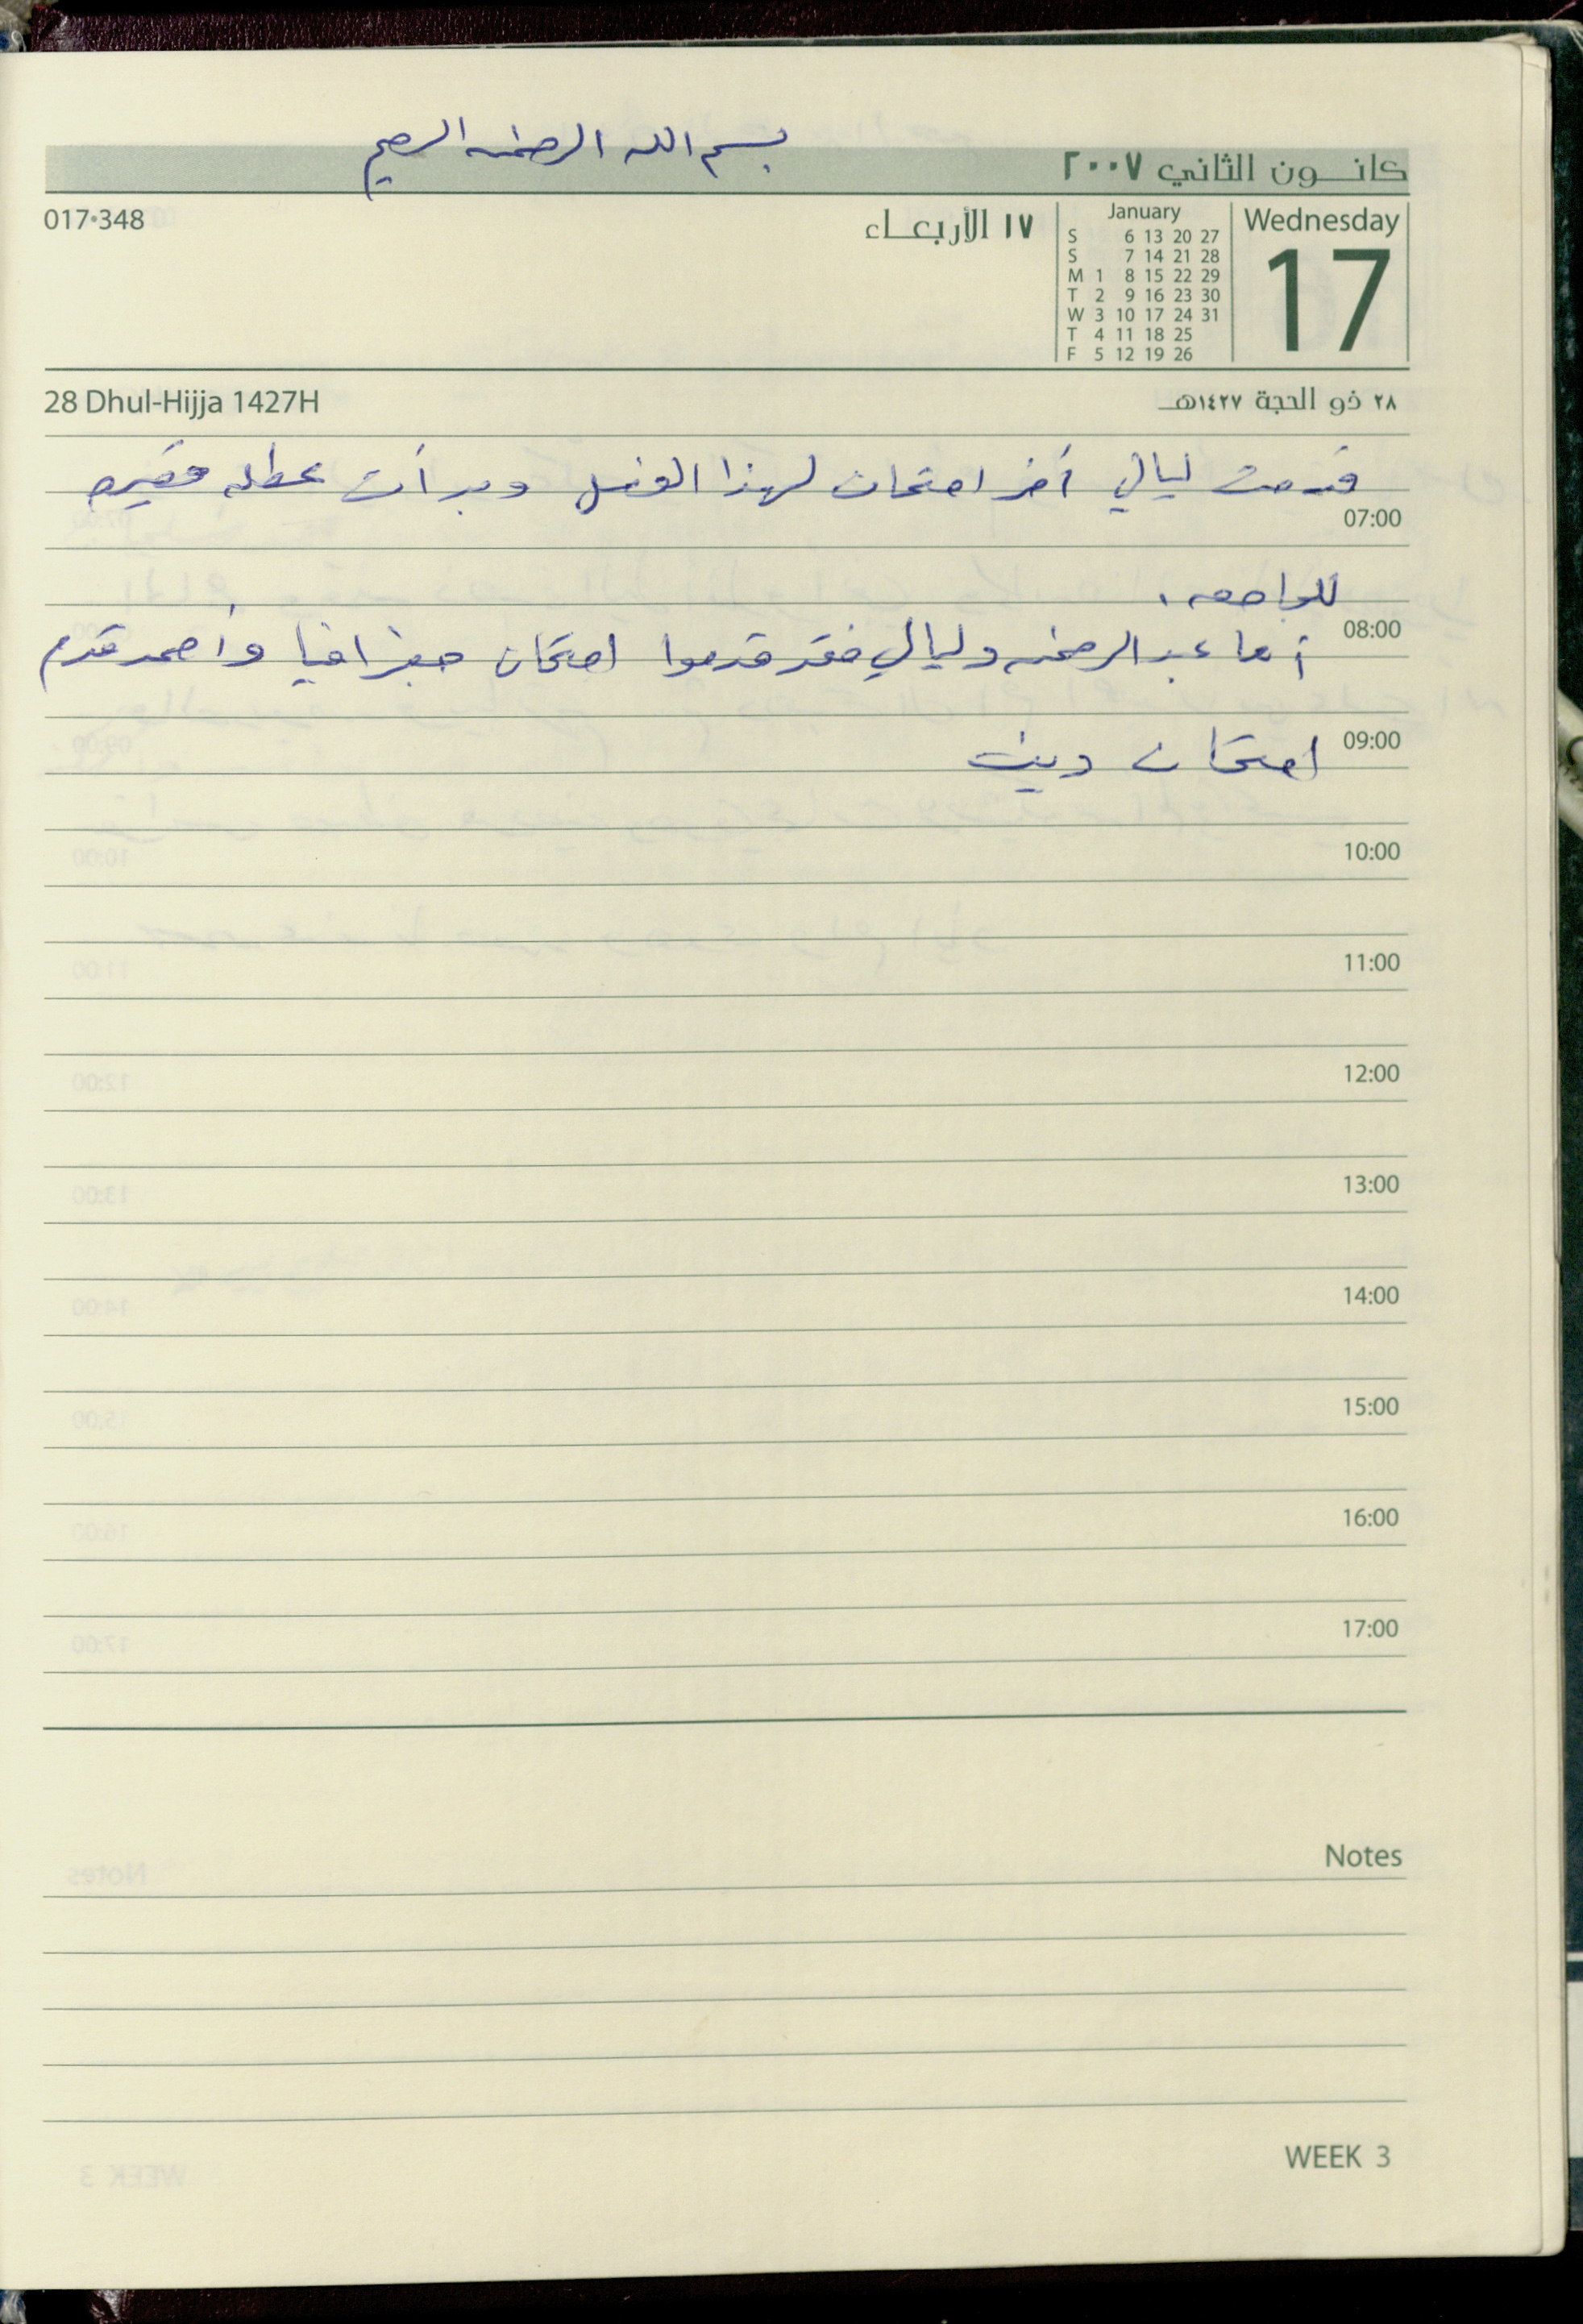 بسم الله الرحمن الرحيم
كانون الثاني ٢٠٠٧
017·348
١٧ الأربعاء
January
S 6 13 20 27
S 7 14 21 28
M 1 8 15 22 29
T 2 9 16 23 30
W 3 10 17 24 31
T 4 11 18 25
F 5 12 19 26
Wednesday
17
28 Dhul-Hijja 1427H
٢٨ ذو الحجة ١٤٢٧هـ
قدمت ليالي أخر امتحان لهذا الفصل وبدأت عطله قصيره
07:00
للجامعه.
08:00
أما عبد الرحمن وليالي فقد قدموا امتحان جغرافيا وأحمد قدم
09:00
امتحان دين
10:00
11:00
12:00
13:00
14:00
15:00
16:00
17:00
Notes
WEEK 3